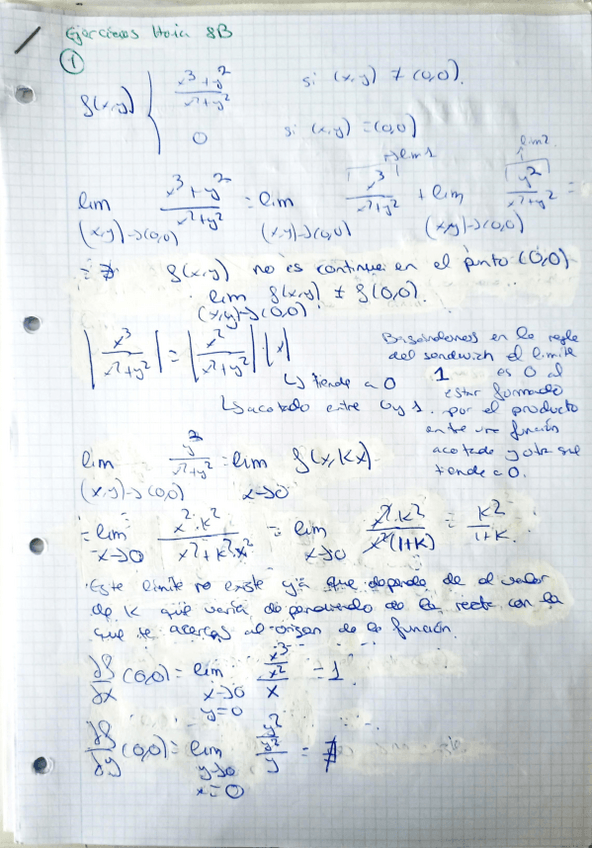 Ejercicios Hoja 8B
①
f(x,y) { x³+y² / x²+y² si (x,y) ≠ (0,0).
0 si (x,y) = (0,0)
lim (x,y)→(0,0) x³+y² / x²+y² = lim (x,y)→(0,0) x³ / x²+y² → lim 1 + lim (x,y)→(0,0) y² / x²+y² → lim 2 =
= ∄ f(x,y) no es continua en el punto (0,0)
lim (x,y)→(0,0) f(x,y) ≠ f(0,0).
| x³ / x²+y² | = | x² / x²+y² | · |x|
↳ tiende a 0
↳ acotado entre 0 y 1.
Basándonos en la regla
del sandwich el límite
1 es 0 al
estar formado
por el producto
entre una función
acotada y otra que
tiende a 0.
lim (x,y)→(0,0) y² / x²+y² = lim x→0 f(x,Kx)
= lim x→0 x²·K² / x²+K²x² = lim x→0 x²·K² / x²(1+K) = K² / 1+K
Este límite no existe ya que depende de el valor
de K que varía dependiendo de la recta con la
que te acercas al origen de la función.
∂f/∂x (0,0) = lim x→0 y=0 x³/x² / x = 1
∂f/∂y (0,0) = lim y→0 x=0 y²/y² / y = ∄